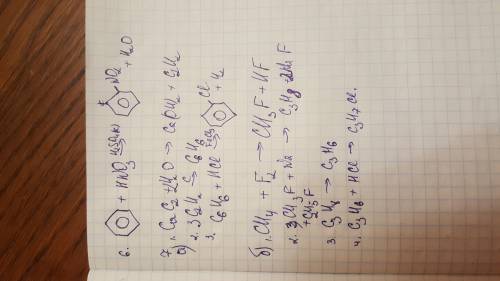 6. + HNO₃ H₂SO₄(к) → NO₂ + H₂O
7.
а) 1. CaC₂ + 2H₂O → Ca(OH)₂ + C₂H₂
2. 3C₂H₂ C→ C₆H₆
3. C₆H₆ + HCl FeCl₃→ Cl + H₂
б) 1. CH₄ + F₂ → CH₃F + HF
2. CH₃F + Na → C₃H₈ + 2NaF
+ C₂H₅F
3. C₃H₈ → C₃H₆
4. C₃H₆ + HCl → C₃H₇Cl.